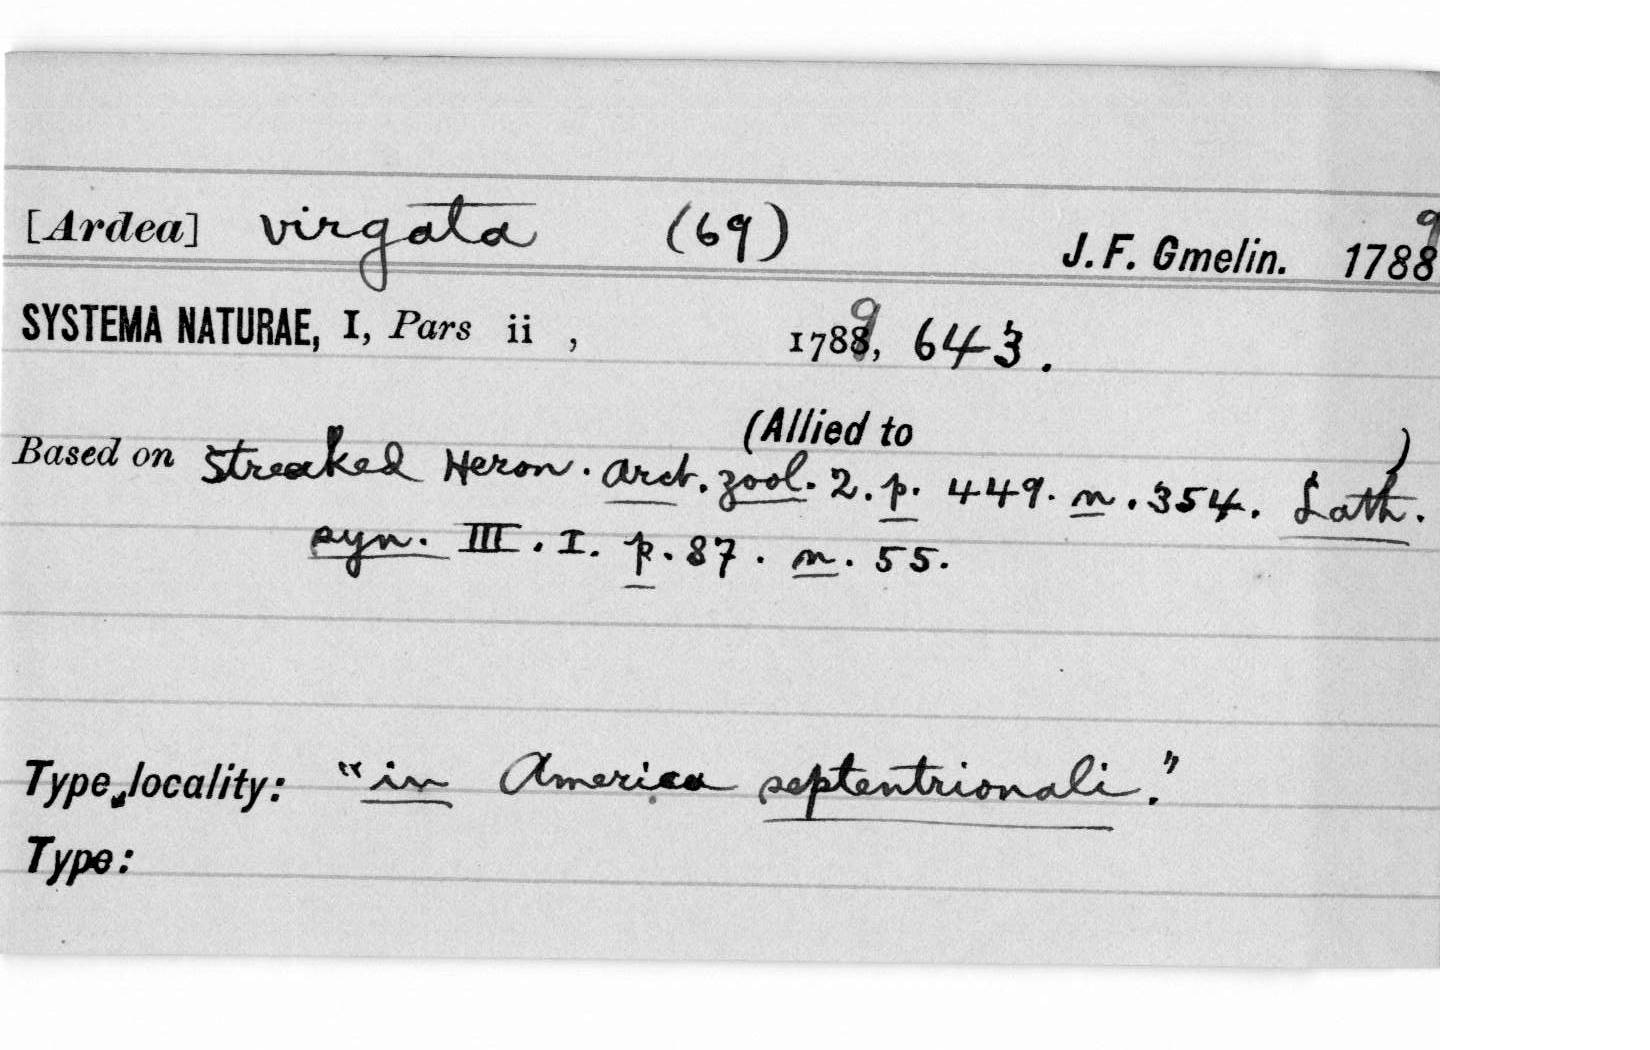 [Ardea] virgata (69) J. F. Gmelin. 17889
SYSTEMA NATURAE, I, Pars ii , 17889, 643.
(Allied to )
Based on Streaked Heron. Arct. Zool. 2. p. 449. n. 354. Lath.
syn. III. I. p. 87. n. 55.
Type locality: "in America septentrionali."
Type: